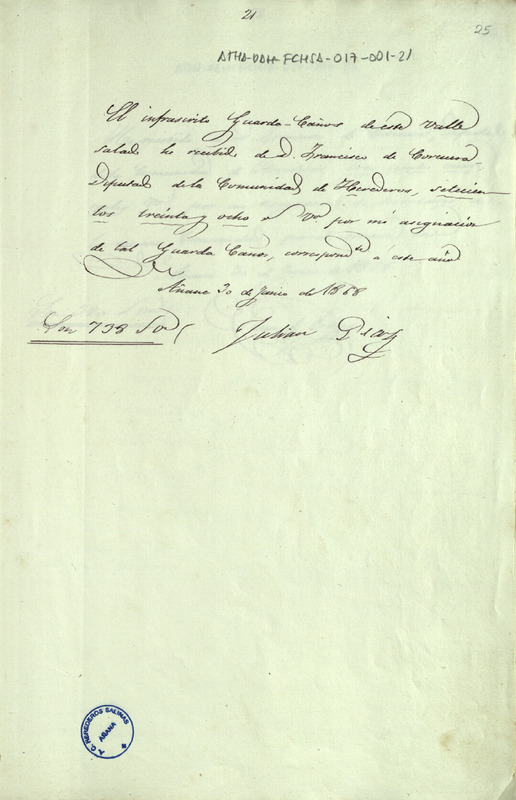 21
25
ATHA-DAH-FCHSA-017-001-21
El infrascrito Guarda-Caños de este Valle
salado he recibido de D. Francisco de Corcuera
Diputado de la Comunidad de Herederos, setecien
tos treinta y ocho r.s v.n por mi asignacion
de tal Guarda Caños, correspond.te a este año
Añana 30 de Junio de 1868
Son 738 r.s v.n
Julian Diaz
A. C. HEREDEROS SALINAS
AÑANA